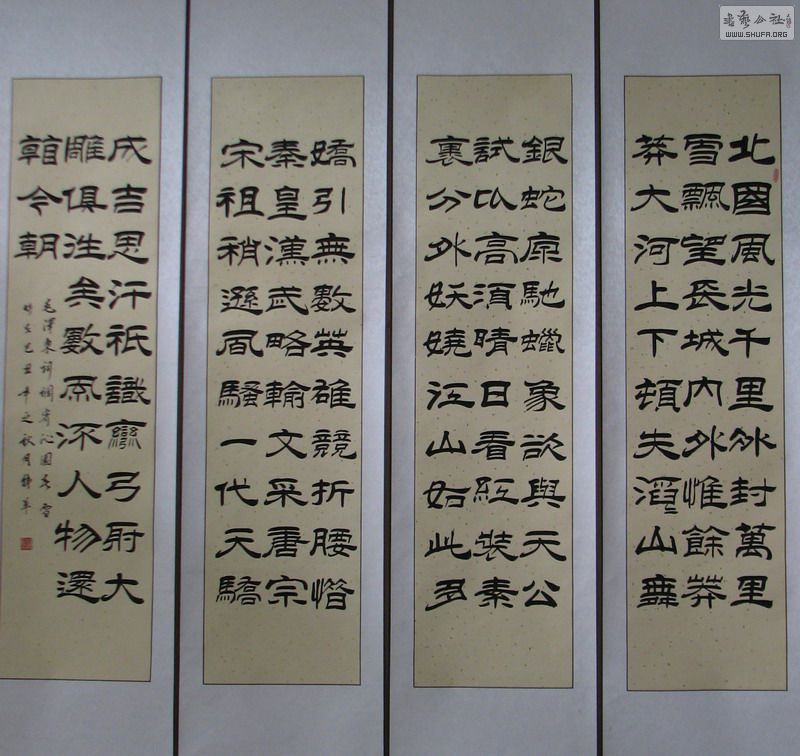 書藝公社
WWW.SHUFA.ORG
北國風光千里冰封萬里
雪飄望長城內外惟餘莽
莽大河上下頓失滔〻山舞
銀蛇原馳蠟象欲與天公
試以高須晴日看紅裝素
裹分外妖嬈江山如此多
嬌引無數英雄競折腰惜
秦皇漢武略輸文采唐宗
宋祖稍遜風騷一代天驕
成吉思汗祇識彎弓射大
雕俱往矣數風流人物還
看今朝
毛澤東詞調寄沁園春雪
時在己丑年之秋月